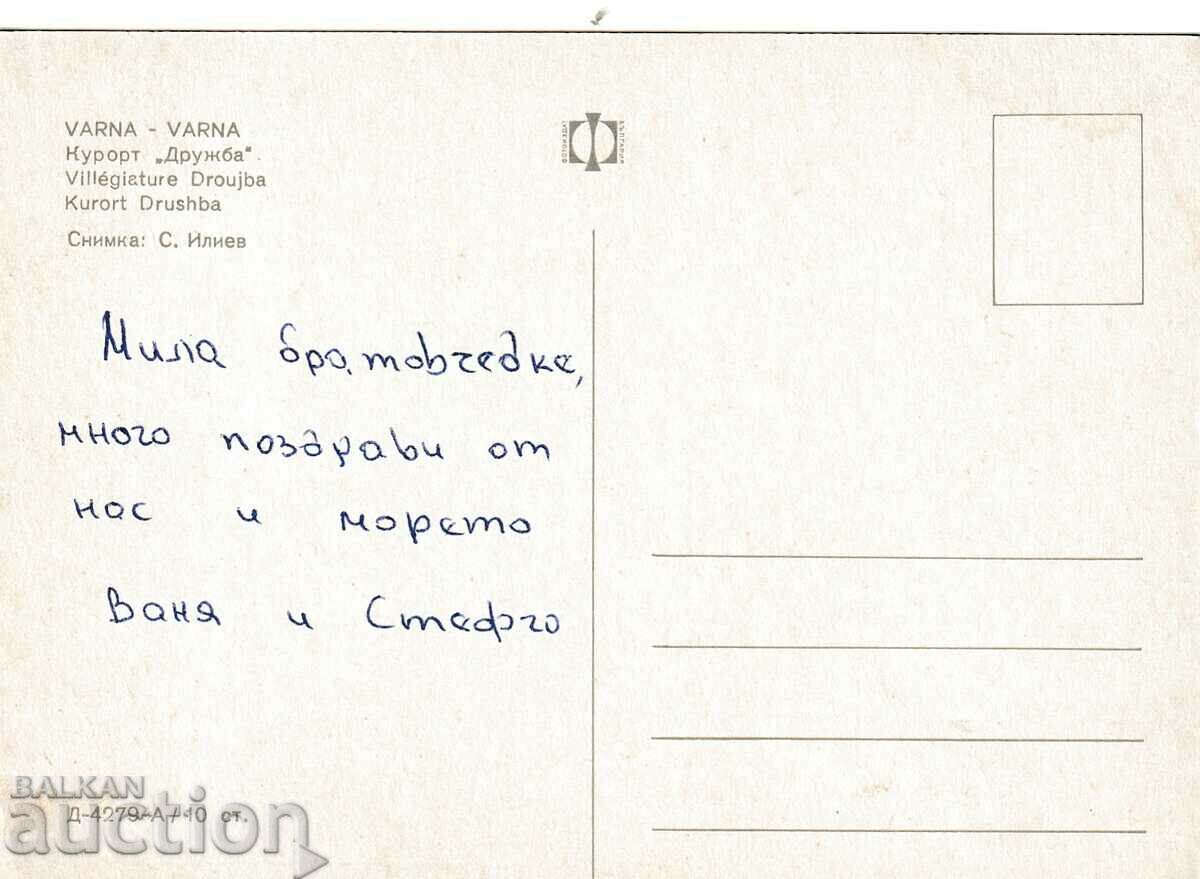 VARNA - VARNA
Курорт „Дружба“.
Villégiature Droujba
Kurort Drushba
Снимка: С. Илиев
ФОТОИЗДАТ
БЪЛГАРИЯ
Мила братовчедке,
много поздрави от
нас и морето
Ваня и Стефчо
Д-4279-А/10 ст.
BALKAN
auction